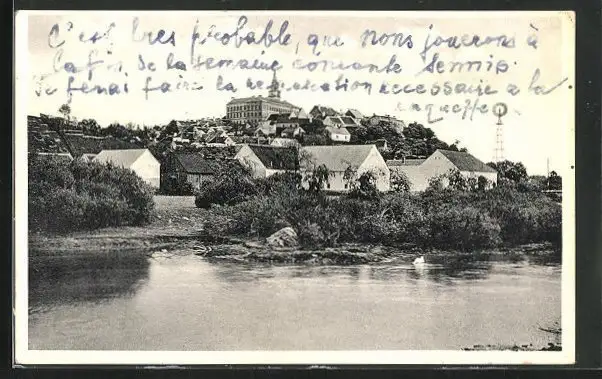 C'est tres probable, que nous jouerons à
la fin de la semaine courante tennis.
Je ferai faire la reparation necessaire a la
raquette.